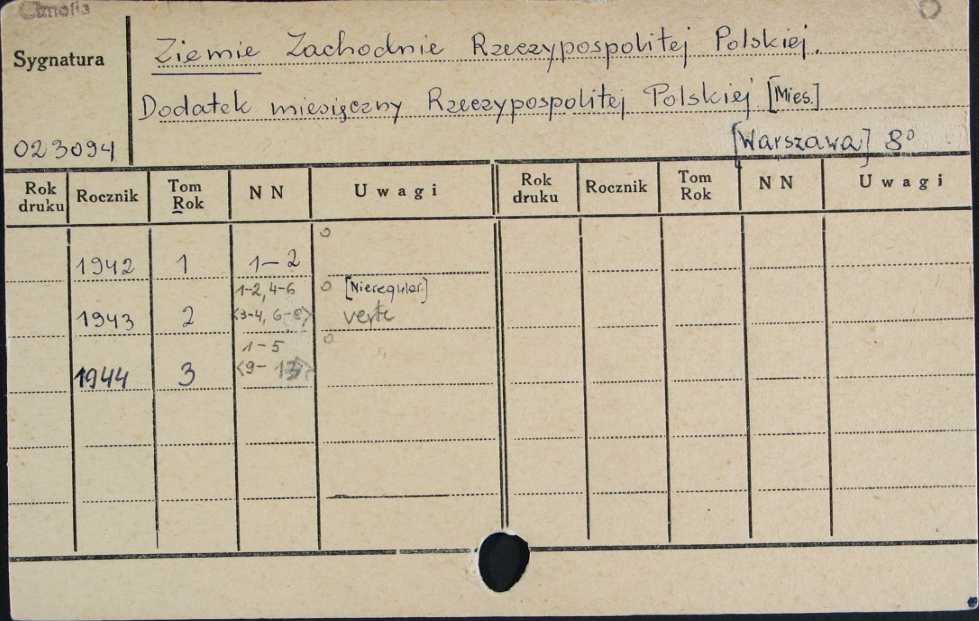 Sygnatura
Ziemie Zachodnie Rzeczypospolitej Polskiej.
Dodatek miesięczny Rzeczypospolitej Polskiej [Mies.]
023094
[Warszawa] 8°
Rok druku Rocznik Tom Rok NN Uwagi Rok druku Rocznik Tom Rok NN Uwagi
1942 1 1-2
1-2, 4-6 [Nieregular.]
1943 2 <3-4, 6-8> verte
1-5
1944 3 <9-